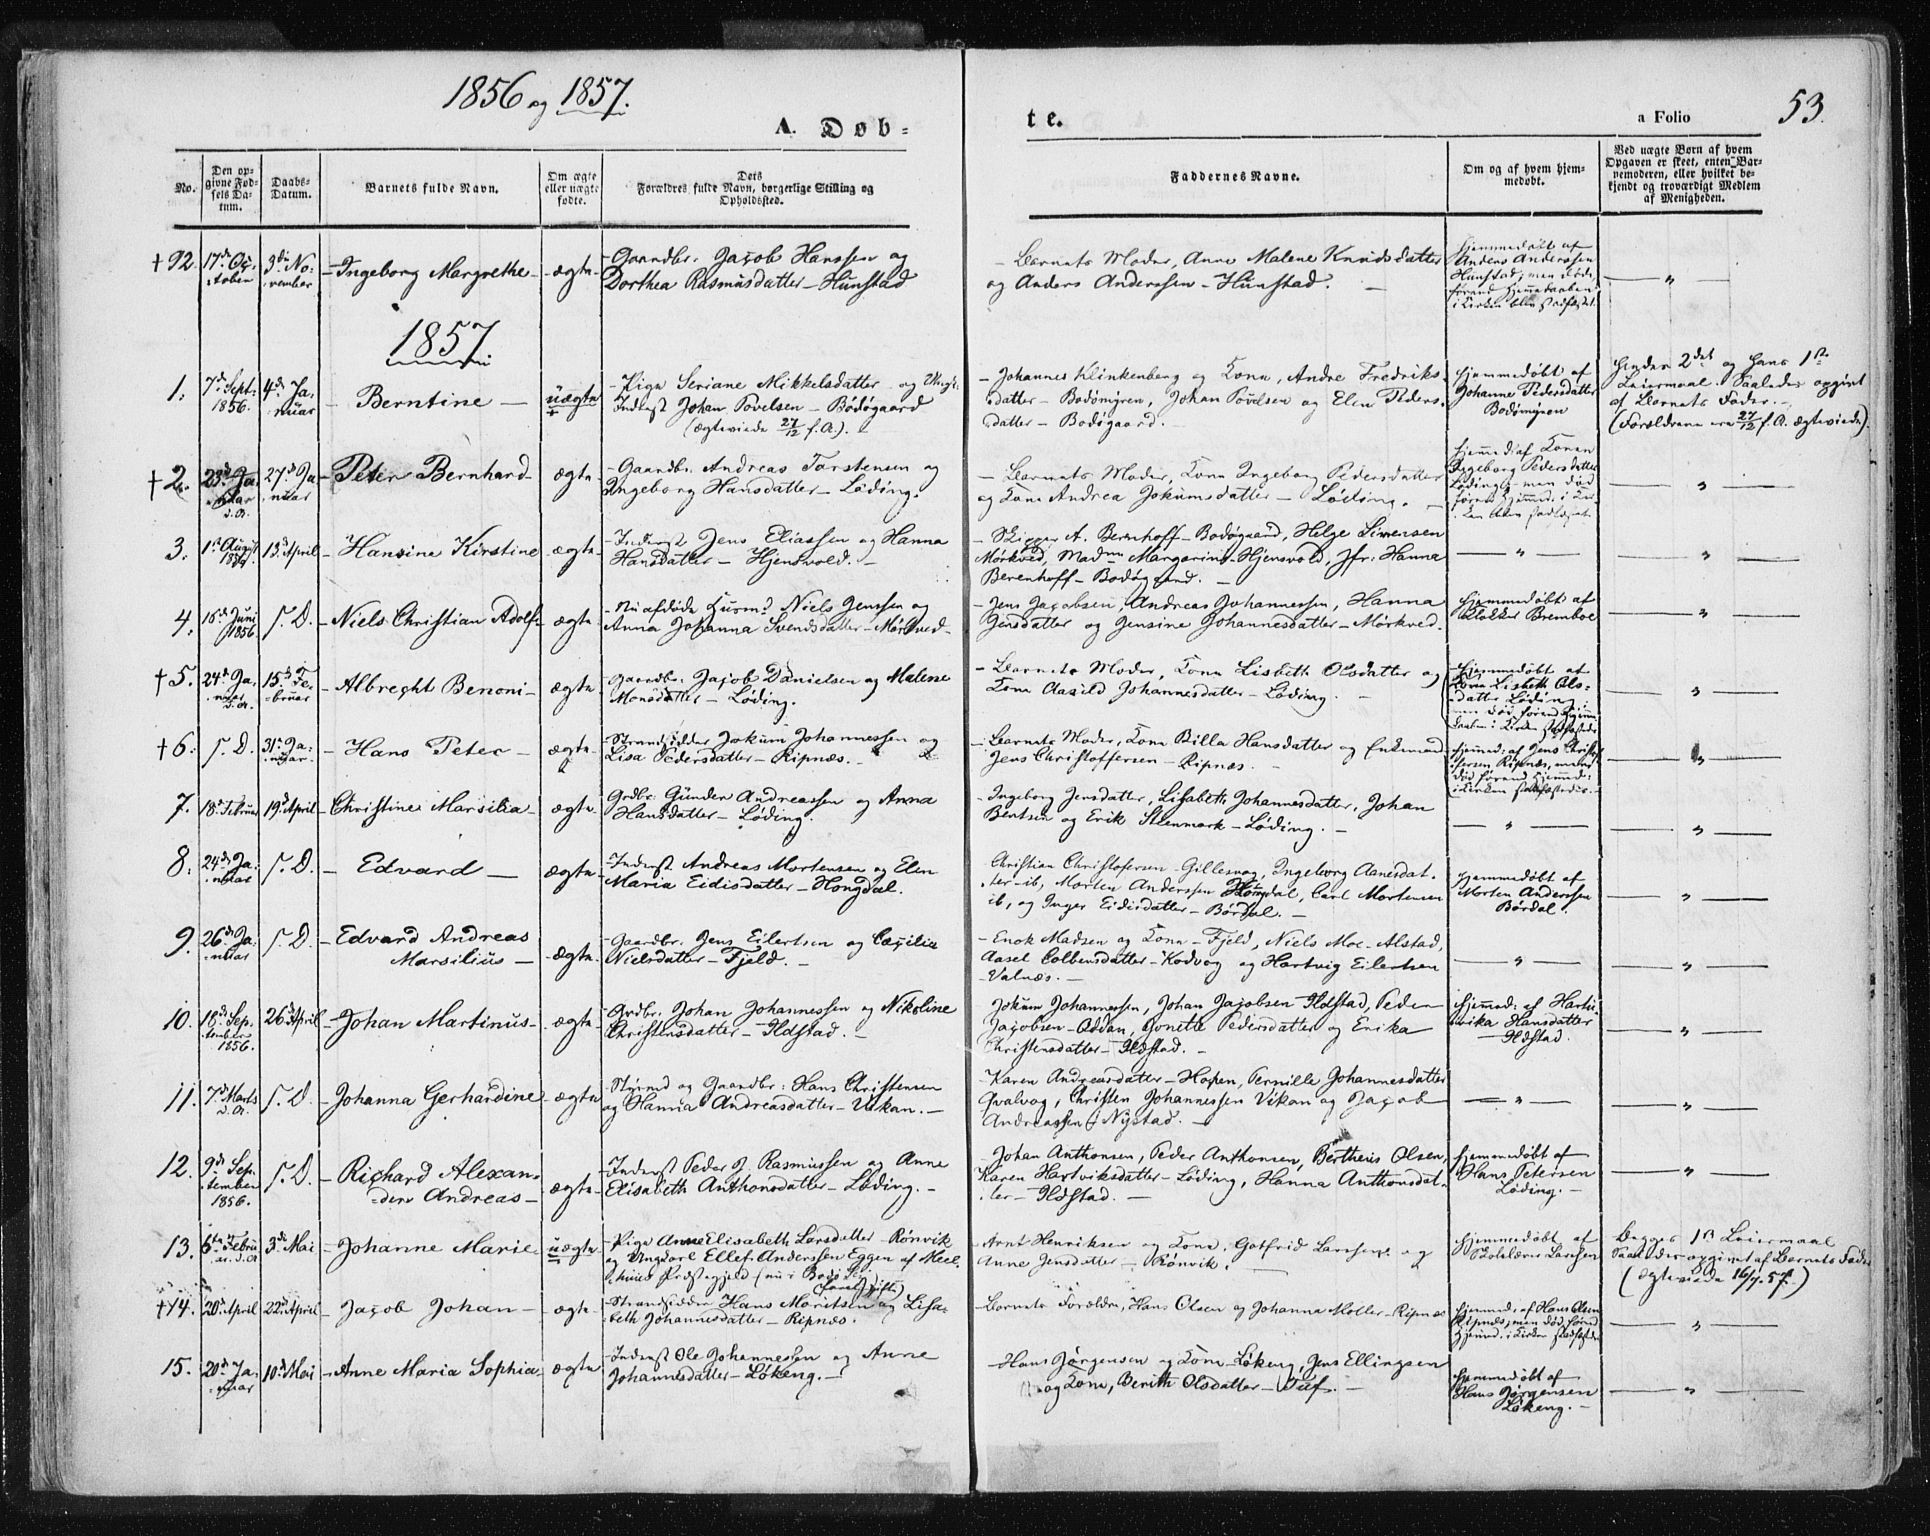 1856 og 1857.
A. Døb=
te.
a Folio 53.
No.
Den op-
givne Fød-
sels Da-
tum.
Daabs-
Datum.
Barnets fulde Navn.
Om ægte
eller uægte
fødte.
Dets
Forældres fulde Navn, borgerlige Stilling og
Opholdssted.
Faddernes Navne.
Om og af hvem hjem-
medøbt.
Ved uægte Børn af hvem
Opgaven er skeet, enten Bar-
nemoderen, eller hvilket be-
kjendt og troværdigt Medlem
af Menigheden.
†92. 17de Oc-
tober
3die No-
vember
Ingeborg Margrethe
ægte
Gaardbr. Jacob Hanssen og
Dorthea Rasmusdatter – Hunstad
Barnets Moder, Anne Malene Knudsdatter
og Anders Anderssen – Hunstad.
Hjemmedøbt af
Anders Anderssen
Hunstad; men døde
førend Hjemmedaaben
i Kirken blev stadfæstet.
"
1857
1. 7de Sept:
1856.
4de Ja-
nuar
Berntine
uægte
+
Pige Seriane Mikkelsdatter og Ungk.
Inderst Johan Povelsen – Bodøgaard
(ægteviede 27/12 f. A.).
Johannes Klinkenberg og Kone, Andre Fredriks-
datter – Bodømyren, Johan Povelsen og Elen Peders-
datter – Bodøgaard.
Hjemmedøbt af
Johanne Pedersdatter
Bodømyren
Hendes 2det og hans 1ste
Leiermaal. Saaledes opgivt
af Barnets Fader.
(Forældrene ere 27/12 f. A. ægteviede).
†2. 23de Ja-
nuar
d. A.
27de Ja-
nuar
Peter Bernhard
ægte
Gaardbr. Andreas Torstensen og
Ingeborg Hansdatter – Løding.
Barnets Moder, Kone Ingeborg Pedersdatter
og Kone Andrea Jokumsdatter – Løding.
Hjemmed. af Konen
Ingeborg Pedersdatter
Løding – men død
førend Hjemmed. i Kir-
ken blev stadfæstet.
"
3. 1ste August
1856.
13de April
Hansine Kirstine
ægte
Inderst Jens Eliassen og Hanna
Hansdatter – Hjensvold.
Skipper A. Bernhoff – Bodøgaard, Helge Simensen
Mørkved, Madm Margarine – Hjensvold, Jfr. Hanna
Berenhoff – Bodøgaard.
"
"
4. 16de Juni
1856.
S. D.
Niels Christian Adolf
ægte
Nu afdøde Husmd Niels Jenssen og
Anna Johanna Svendsdatter – Mørkved
Jens Jacobsen, Andreas Johannessen, Hanna
Jensdatter og Jensine Johannesdatter – Mørkved.
Hjemmedøbt af
Klokker Bremboe
"
†5. 24de Ja-
nuar
d. A.
15de Fe-
bruar
Albrecht Benoni
ægte
Gaardbr: Jacob Danielsen og Malene
Monsdatter – Løding.
Barnets Moder, Kone Lisbeth Olsdatter og
Kone Aasild Johannesdatter – Løding.
Hjemmedøbt af
Kone Lisbeth Ols-
datter Løding,
men død førend Hjemme-
daaben i Kirken stadfæstedes.
"
†6. S. D.
31te Ja-
nuar
Hans Peter
ægte
Strandsidder Jokum Johannessen og
Lisa Pedersdatter – Ripnæs.
Barnets Moder, Kone Billa Hansdatter og Enkemand
Jens Christoffersen – Ripnæs.
Hjemmed: af Jens Christof-
fersen Ripnæs, men
død førend Hjemmed:
i Kirken stadfæstedes.
"
7. 18de Februar
19de April
Christine Marsilia
ægte
Grdbr. Gunder Andreassen og Anna
Hansdatter – Løding.
Ingeborg Jensdatter, Lisabeth Johannesdatter, Johan
Bentsen og Erik Steenmark – Løding.
"
"
8. 24de Ja-
nuar
S. D.
Edvard
ægte
Inderst Andreas Mortensen og Elen
Maria Eidisdatter – Hongdal.
Christian Christofersen – Gillesvog, Ingeborg Aanesdat-
ter – ib, Morten Anderssen Hongdal, Carl Mortensen
ib, og Inger Eidisdatter – Børdal.
Hjemmedøbt af
Morten Anderssen
Børdal.
"
9. 26de Ja-
nuar
S. D.
Edvard Andreas
Marsilius
ægte
Gaardbr. Jens Eilertsen og Cecilia
Nielsdatter – Fjeld.
Enok Madsen og Kone – Fjeld, Niels Moe – Alstad,
Aasel Colbensdatter – Kodvog og Hartvig Eilertsen
Valnæs.
"
"
10. 18de Sep-
tember
1856.
26de April
Johan Martinus
ægte
Grdbr. Johan Johannessen og Nikoline
Christensdatter – Ildstad.
Jokum Johannessen, Johan Jacobsen Ildstad, Peder
Jacobsen – Oddan, Jonette Pedersdatter og Erika
Christensdatter – Ildstad.
Hjemmed: af Hart-
vika Hansdatter
Ildstad.
"
11. 7de Marts
d. A.
S. D.
Johanna Gerhardine
ægte
Styrmd og Gaardbr: Hans Christensen
og Hanna Andreasdatter – Vikan.
Karen Andreasdatter – Hopen, Pernille Johannesdatter
Qvalvog, Christen Johannessen Vikan og Jacob
Andreassen i Nystad.
"
"
12. 9de Sep-
tember
1856.
S. D.
Richard Alexan-
der Andreas
ægte
Inderst Peder J. Rasmussen og Anne
Elisabeth Anthonsdatter – Løding.
Johan Anthonsen, Peder Anthonsen, Bertheus Olsen,
Karen Hartviksdatter – Løding, Hanna Anthonsdat-
ter – Ildstad.
Hjemmedøbt af
Hans Petersen
Løding.
"
13. 6te Febru-
ar d. A.
3die Mai
Johanne Marie
uægte
Pige Anne Elisabeth Larsdatter Rønvik
og Ungkarl Ellef Anderssen Eggen af Meel-
huus Præstegjeld (nu i Bodø By)
Arnt Henriksen og Kone, Gotfrid Larssen og
Anne Jensdatter – Rønvik.
Hjemmedøbt af
Skolelærer Larssen
Begges 1ste Leiermaal
Saaledes opgivet af Barnets Fader
(ægteviede 16/7 57.)
†14. 20de April
22de April
Jacob Johan
ægte
Strandsidder Hans Moritsen og Lisa-
beth Johannesdatter – Ripnæs.
Barnets Forældre, Hans Olsen og Johanna Møller – Ripnæs
Hjemmed: af Hans Olsen
Ripnæs, men død førend
Hjemmd. i Kirken stadfæstedes
"
15. 20de Ja-
nuar
10de Mai
Anne Maria Sophia
ægte
Inderst Ole Johannessen og Anne
Johannesdatter – Løkeng.
Hans Jørgensen og Kone – Løkeng, Jens Ellingsen
og Kone, Berith Olsdatter – Tuf.
Hjemmedøbt af
Hans Jørgensen
Løkeng.
"